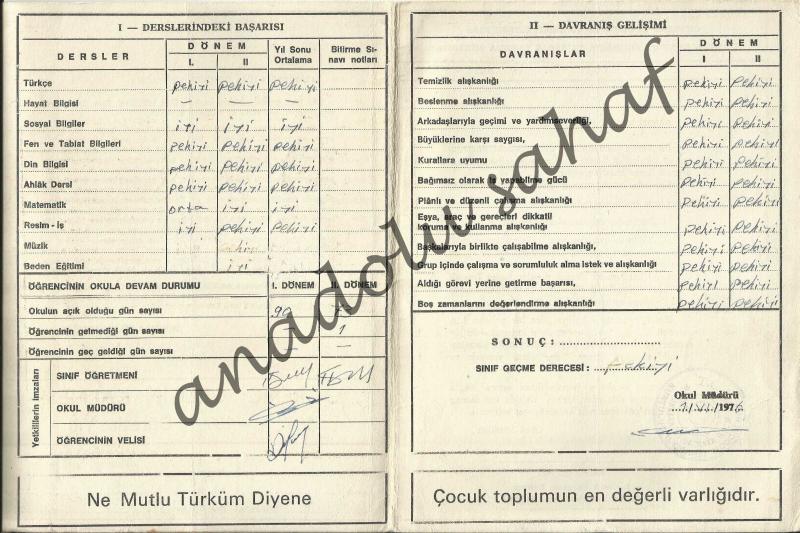 I — DERSLERİNDEKİ BAŞARISI
DERSLER
DÖNEM
I. II
Yıl Sonu Ortalama
Bitirme Sınavı notları
Türkçe pekiyi pekiyi pekiyi
Hayat Bilgisi — — —
Sosyal Bilgiler iyi iyi iyi
Fen ve Tabiat Bilgileri pekiyi pekiyi pekiyi
Din Bilgisi pekiyi pekiyi pekiyi
Ahlâk Dersi pekiyi pekiyi pekiyi
Matematik orta iyi iyi
Resim - İş iyi pekiyi pekiyi
Müzik
Beden Eğitimi iyi
ÖĞRENCİNİN OKULA DEVAM DURUMU I. DÖNEM II. DÖNEM
Okulun açık olduğu gün sayısı 90
Öğrencinin gelmediği gün sayısı — 1
Öğrencinin geç geldiği gün sayısı — —
Yetkililerin imzaları
SINIF ÖĞRETMENİ
OKUL MÜDÜRÜ
ÖĞRENCİNİN VELİSİ
Ne Mutlu Türküm Diyene
II — DAVRANIŞ GELİŞİMİ
DAVRANIŞLAR
DÖNEM
I II
Temizlik alışkanlığı pekiyi pekiyi
Beslenme alışkanlığı pekiyi pekiyi
Arkadaşlarıyla geçimi ve yardımseverliği, pekiyi pekiyi
Büyüklerine karşı saygısı, pekiyi pekiyi
Kurallara uyumu pekiyi pekiyi
Bağımsız olarak iş yapabilme gücü pekiyi pekiyi
Plânlı ve düzenli çalışma alışkanlığı pekiyi pekiyi
Eşya, araç ve gereçleri dikkatli
koruma ve kullanma alışkanlığı, pekiyi pekiyi
Başkalarıyla birlikte çalışabilme alışkanlığı, pekiyi pekiyi
Grup içinde çalışma ve sorumluluk alma istek ve alışkanlığı pekiyi pekiyi
Aldığı görevi yerine getirme başarısı, pekiyi pekiyi
Boş zamanlarını değerlendirme alışkanlığı pekiyi pekiyi
SONUÇ :
SINIF GEÇME DERECESİ : pekiyi
Okul Müdürü
Çocuk toplumun en değerli varlığıdır.
anadolu sahaf